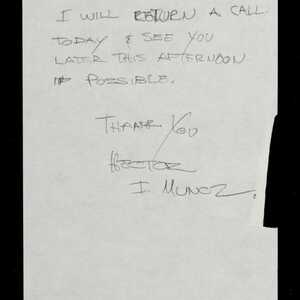 I WILL RETURN A CALL
TODAY & SEE YOU
LATER THIS AFTERNOON
IF POSSIBLE.
THANK YOU
HECTOR
I. MUNOZ.